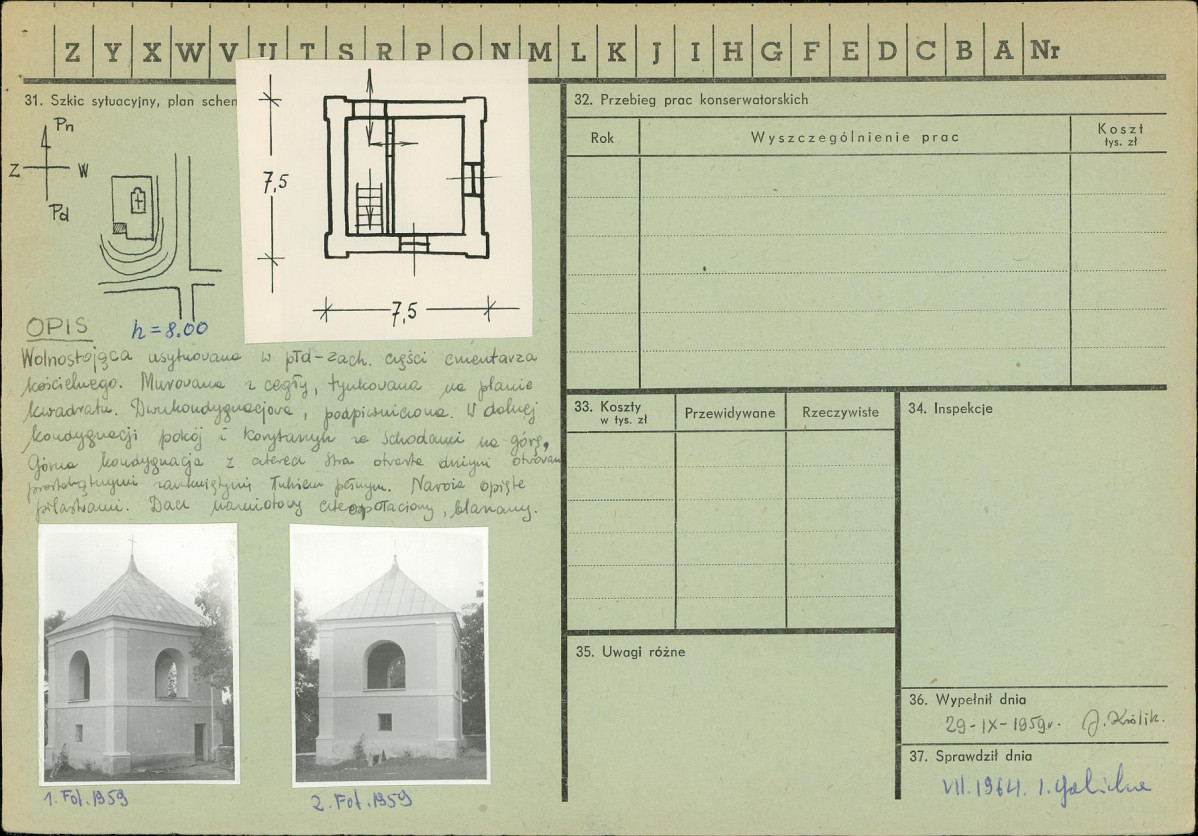 Z Y X W V U T S R P O N M L K J I H G F E D C B A Nr
31. Szkic sytuacyjny, plan schen
Pn
Z W
Pd
7,5
7,5
OPIS h = 8.00
Wolnostojąca usytuowana w płd-zach. części cmentarza
kościelnego. Murowana z cegły, tynkowana na planie
kwadratu. Dwukondygnacjowa, podpiwniczona. W dolnej
kondygnacji pokój i korytarzyk ze schodami na górę,
Górna kondygnacja z czterech stron otwarta dużymi otworami
prostokątnymi zamkniętymi łukiem pełnym. Naroża opięte
pilastrami. Dach namiotowy czteropołaciowy, blaszany.
1. Fot. 1959
2. Fot. 1959
32. Przebieg prac konserwatorskich
Rok Wyszczególnienie prac Koszt
tys. zł
33. Koszty
w tys. zł
Przewidywane Rzeczywiste
34. Inspekcje
35. Uwagi różne
36. Wypełnił dnia
29-IX-1959r. J. Królik.
37. Sprawdził dnia
VII. 1964. I.